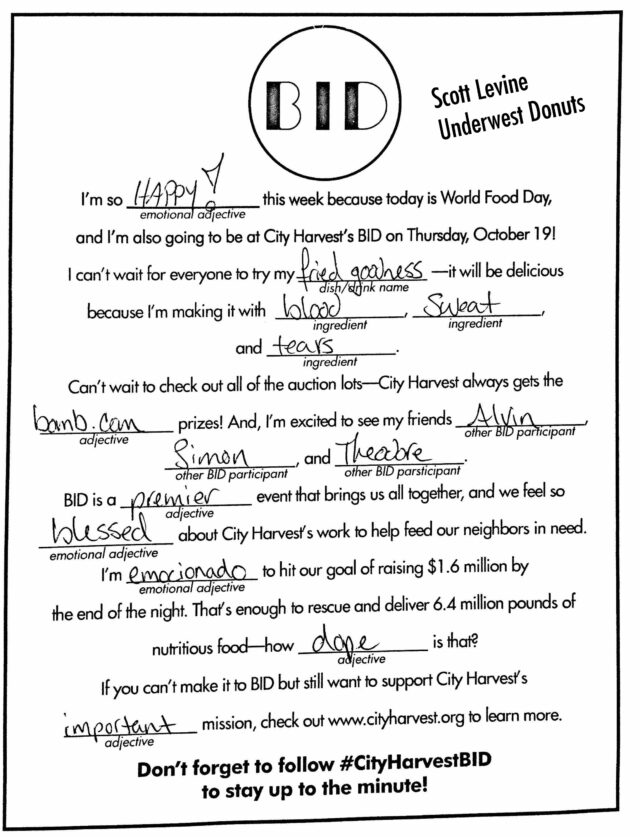 BID
Scott Levine
Underwest Donuts
I'm so HAPPY! this week because today is World Food Day,
emotional adjective
and I'm also going to be at City Harvest's BID on Thursday, October 19!
I can't wait for everyone to try my fried goodness —it will be delicious
dish/drink name
because I'm making it with blood, Sweat,
ingredient ingredient
and tears.
ingredient
Can't wait to check out all of the auction lots—City Harvest always gets the
bomb.com prizes! And, I'm excited to see my friends Alvin,
adjective other BID participant
Simon, and Theodore.
other BID participant other BID parsticipant
BID is a premier event that brings us all together, and we feel so
adjective
blessed about City Harvest's work to help feed our neighbors in need.
emotional adjective
I'm emocionado to hit our goal of raising $1.6 million by
emotional adjective
the end of the night. That's enough to rescue and deliver 6.4 million pounds of
nutritious food—how dope is that?
adjective
If you can't make it to BID but still want to support City Harvest's
important mission, check out www.cityharvest.org to learn more.
adjective
Don't forget to follow #CityHarvestBID
to stay up to the minute!